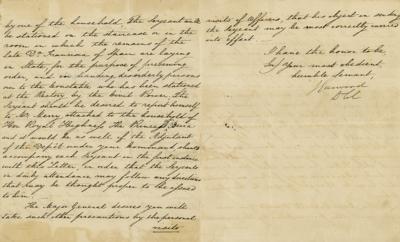 by one of the household, The Serjeant will
be stationed on the staircase or in the
room in which the remains of the
late of Spain are laying
in State, for the purpose of preserving
order, and in handing disorderly persons
over to the Constable who has been stationed
at the Rectory by the Civil Power. The
Serjeant should be desired to report himself
to Mr Merry attached to the household of
Her Royal Highness the Princess Beira
and it would be as well if the Adjutant
of the Depôt under your Command should
accompany each Serjeant in the first instance
with this Letter, in order that the Serjeants
in daily attendance may follow any directions
that may be thought proper to be
to him.
The Major General desires you will
take such other precautions by the personal
visits
visits of Officers, that his object in sending
the Serjeant may be most correctly carried
into effect.
I have the honor to be
Sir, Your most obedient
humble Servant,
Harwood